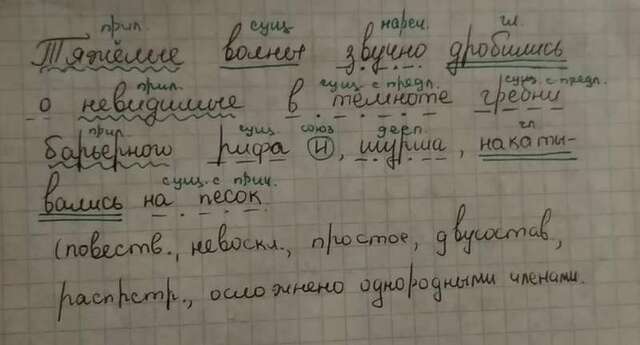 прил. сущ нареч. гл.
Тяжёлые волны звучно дробились
прил. сущ с предл. сущ. с предл.
о невидимые в темноте гребни
прил. сущ. союз деепр. гл.
барьерного рифа и, шурша, накати-
сущ. с
вались на песок.
(повеств., невоскл., простое, двусостав,
распрстр., осложнено однородными членами.